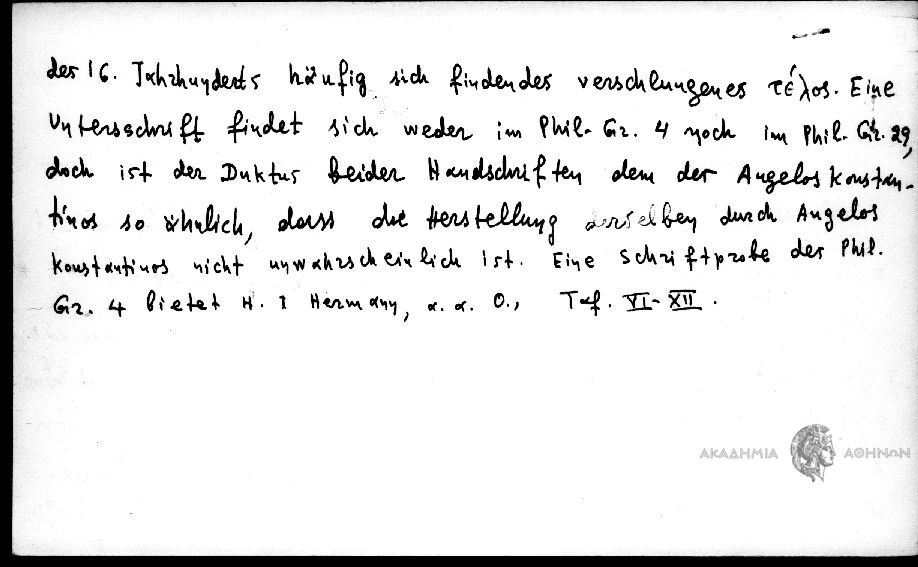 des 16. Jahrhunderts häufig sich findendes verschlungenes τέλος. Eine
Unterschrift findet sich weder im Phil. Gr. 4 noch im Phil. Gr. 29,
doch ist der Duktus beider Handschriften dem der Angelos Konstan-
tinos so ähnlich, dass die Herstellung derselben durch Angelos
Konstantinos nicht unwahrscheinlich ist. Eine Schriftprobe des Phil.
Gr. 4 bietet H. J Hermann, a. a. O., Taf. VI-XII.
ΑΚΑΔΗΜΙΑ ΑΘΗΝΩΝ